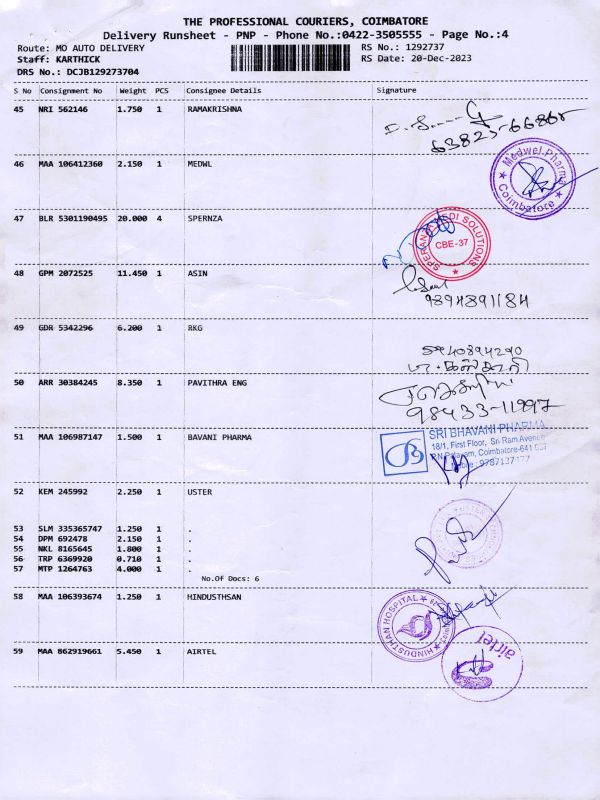 THE PROFESSIONAL COURIERS, COIMBATORE
Delivery Runsheet - PNP - Phone No.:0422-3505555 - Page No.:4
Route: MO AUTO DELIVERY RS No.: 1292737
Staff: KARTHICK RS Date: 20-Dec-2023
DRS No.: DCJB129273704
S No Consignment No Weight PCS Consignee Details Signature
45 NRI 562146 1.750 1 RAMAKRISHNA
63823-66865
46 MAA 106412360 2.150 1 MEDWL
Medwel Pharma
Coimbatore
47 BLR 5301190495 20.000 4 SPERNZA
SPERANZA MEDI SOLUTIONS
CBE-37
48 GPM 2072525 11.450 1 ASIN
9894891184
49 GDR 5342296 6.200 1 RKG
5940894290
50 ARR 30384245 8.350 1 PAVITHRA ENG
98433-11997
51 MAA 106987147 1.500 1 BAVANI PHARMA
SRI BHAVANI PHARMA
18/1, First Floor, Sri Ram Avenue
Coimbatore-641
52 KEM 245992 2.250 1 USTER
53 SLM 335365747 1.250 1 .
54 DPM 692478 2.150 1 .
55 NKL 8165645 1.800 1 .
56 TRP 6369920 0.710 1 .
57 MTP 1264763 4.000 1 .
No.Of Docs: 6
58 MAA 106393674 1.250 1 HINDUSTHSAN
HINDUSTHAN HOSPITAL
59 MAA 862919661 5.450 1 AIRTEL
airtel